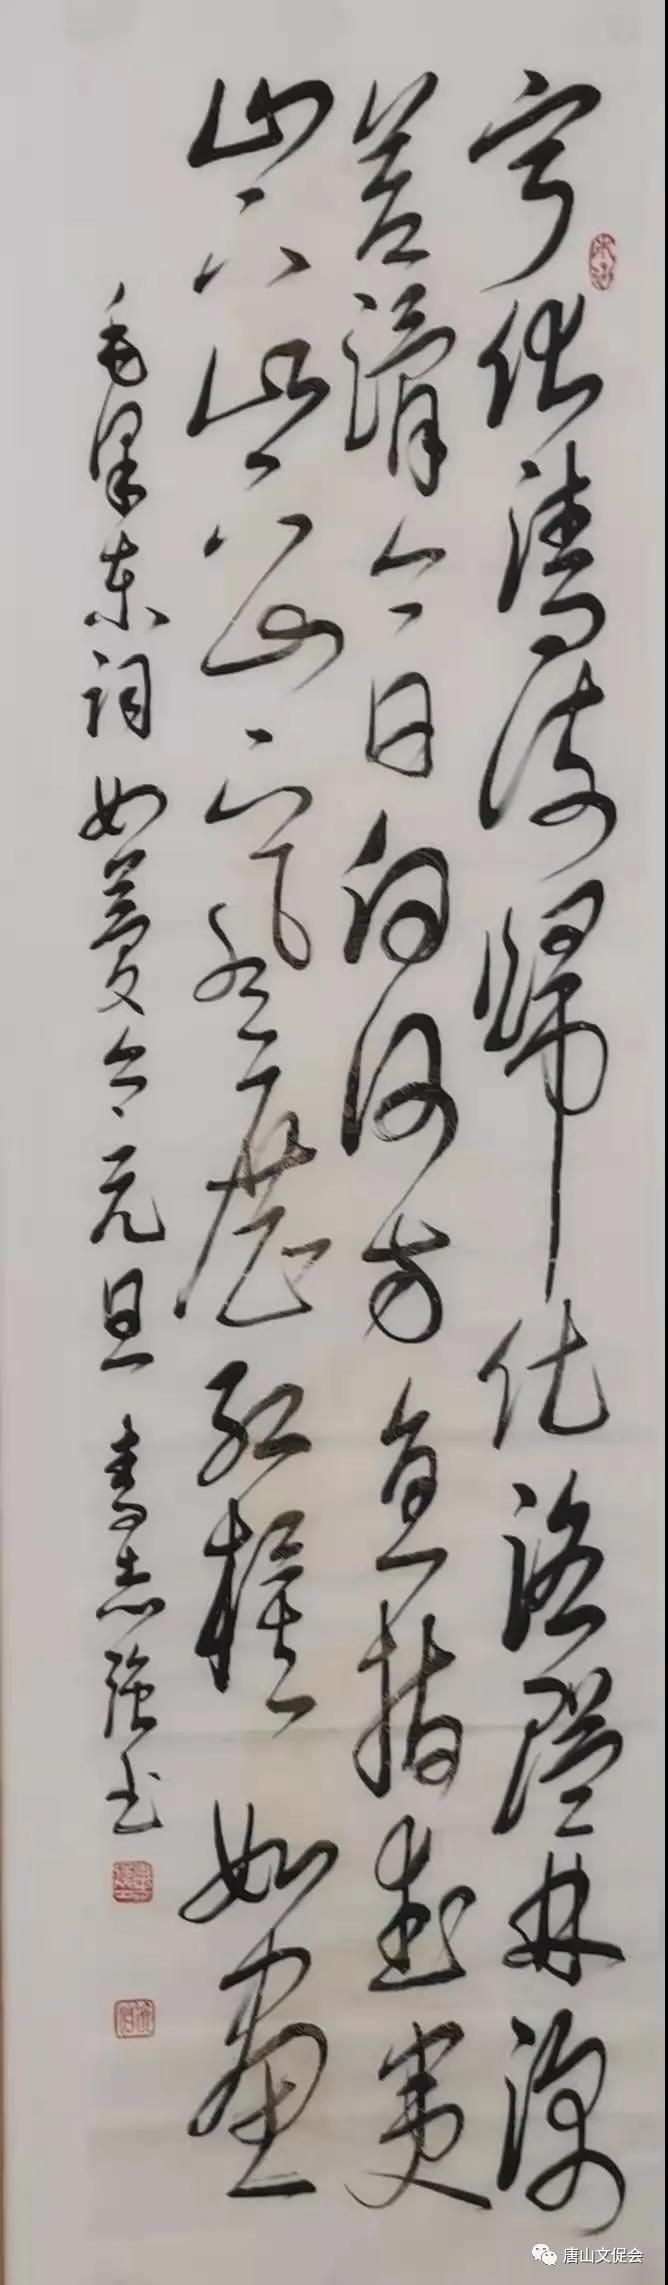 宁化清流归化路隘林深
苔滑今日向何方直指武夷
山下山下山下风展红旗如画
毛泽东词如梦令元旦 李志强书
唐山文促会